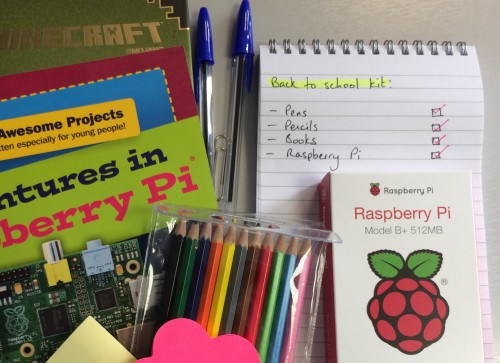 MINECRAFT
Awesome Projects
tten especially for young people!
ntures in
berry Pi
Back to school kit:
- Pens
- Pencils
- Books
- Raspberry Pi
Raspberry Pi
Raspberry Pi
Model B+ 512MB